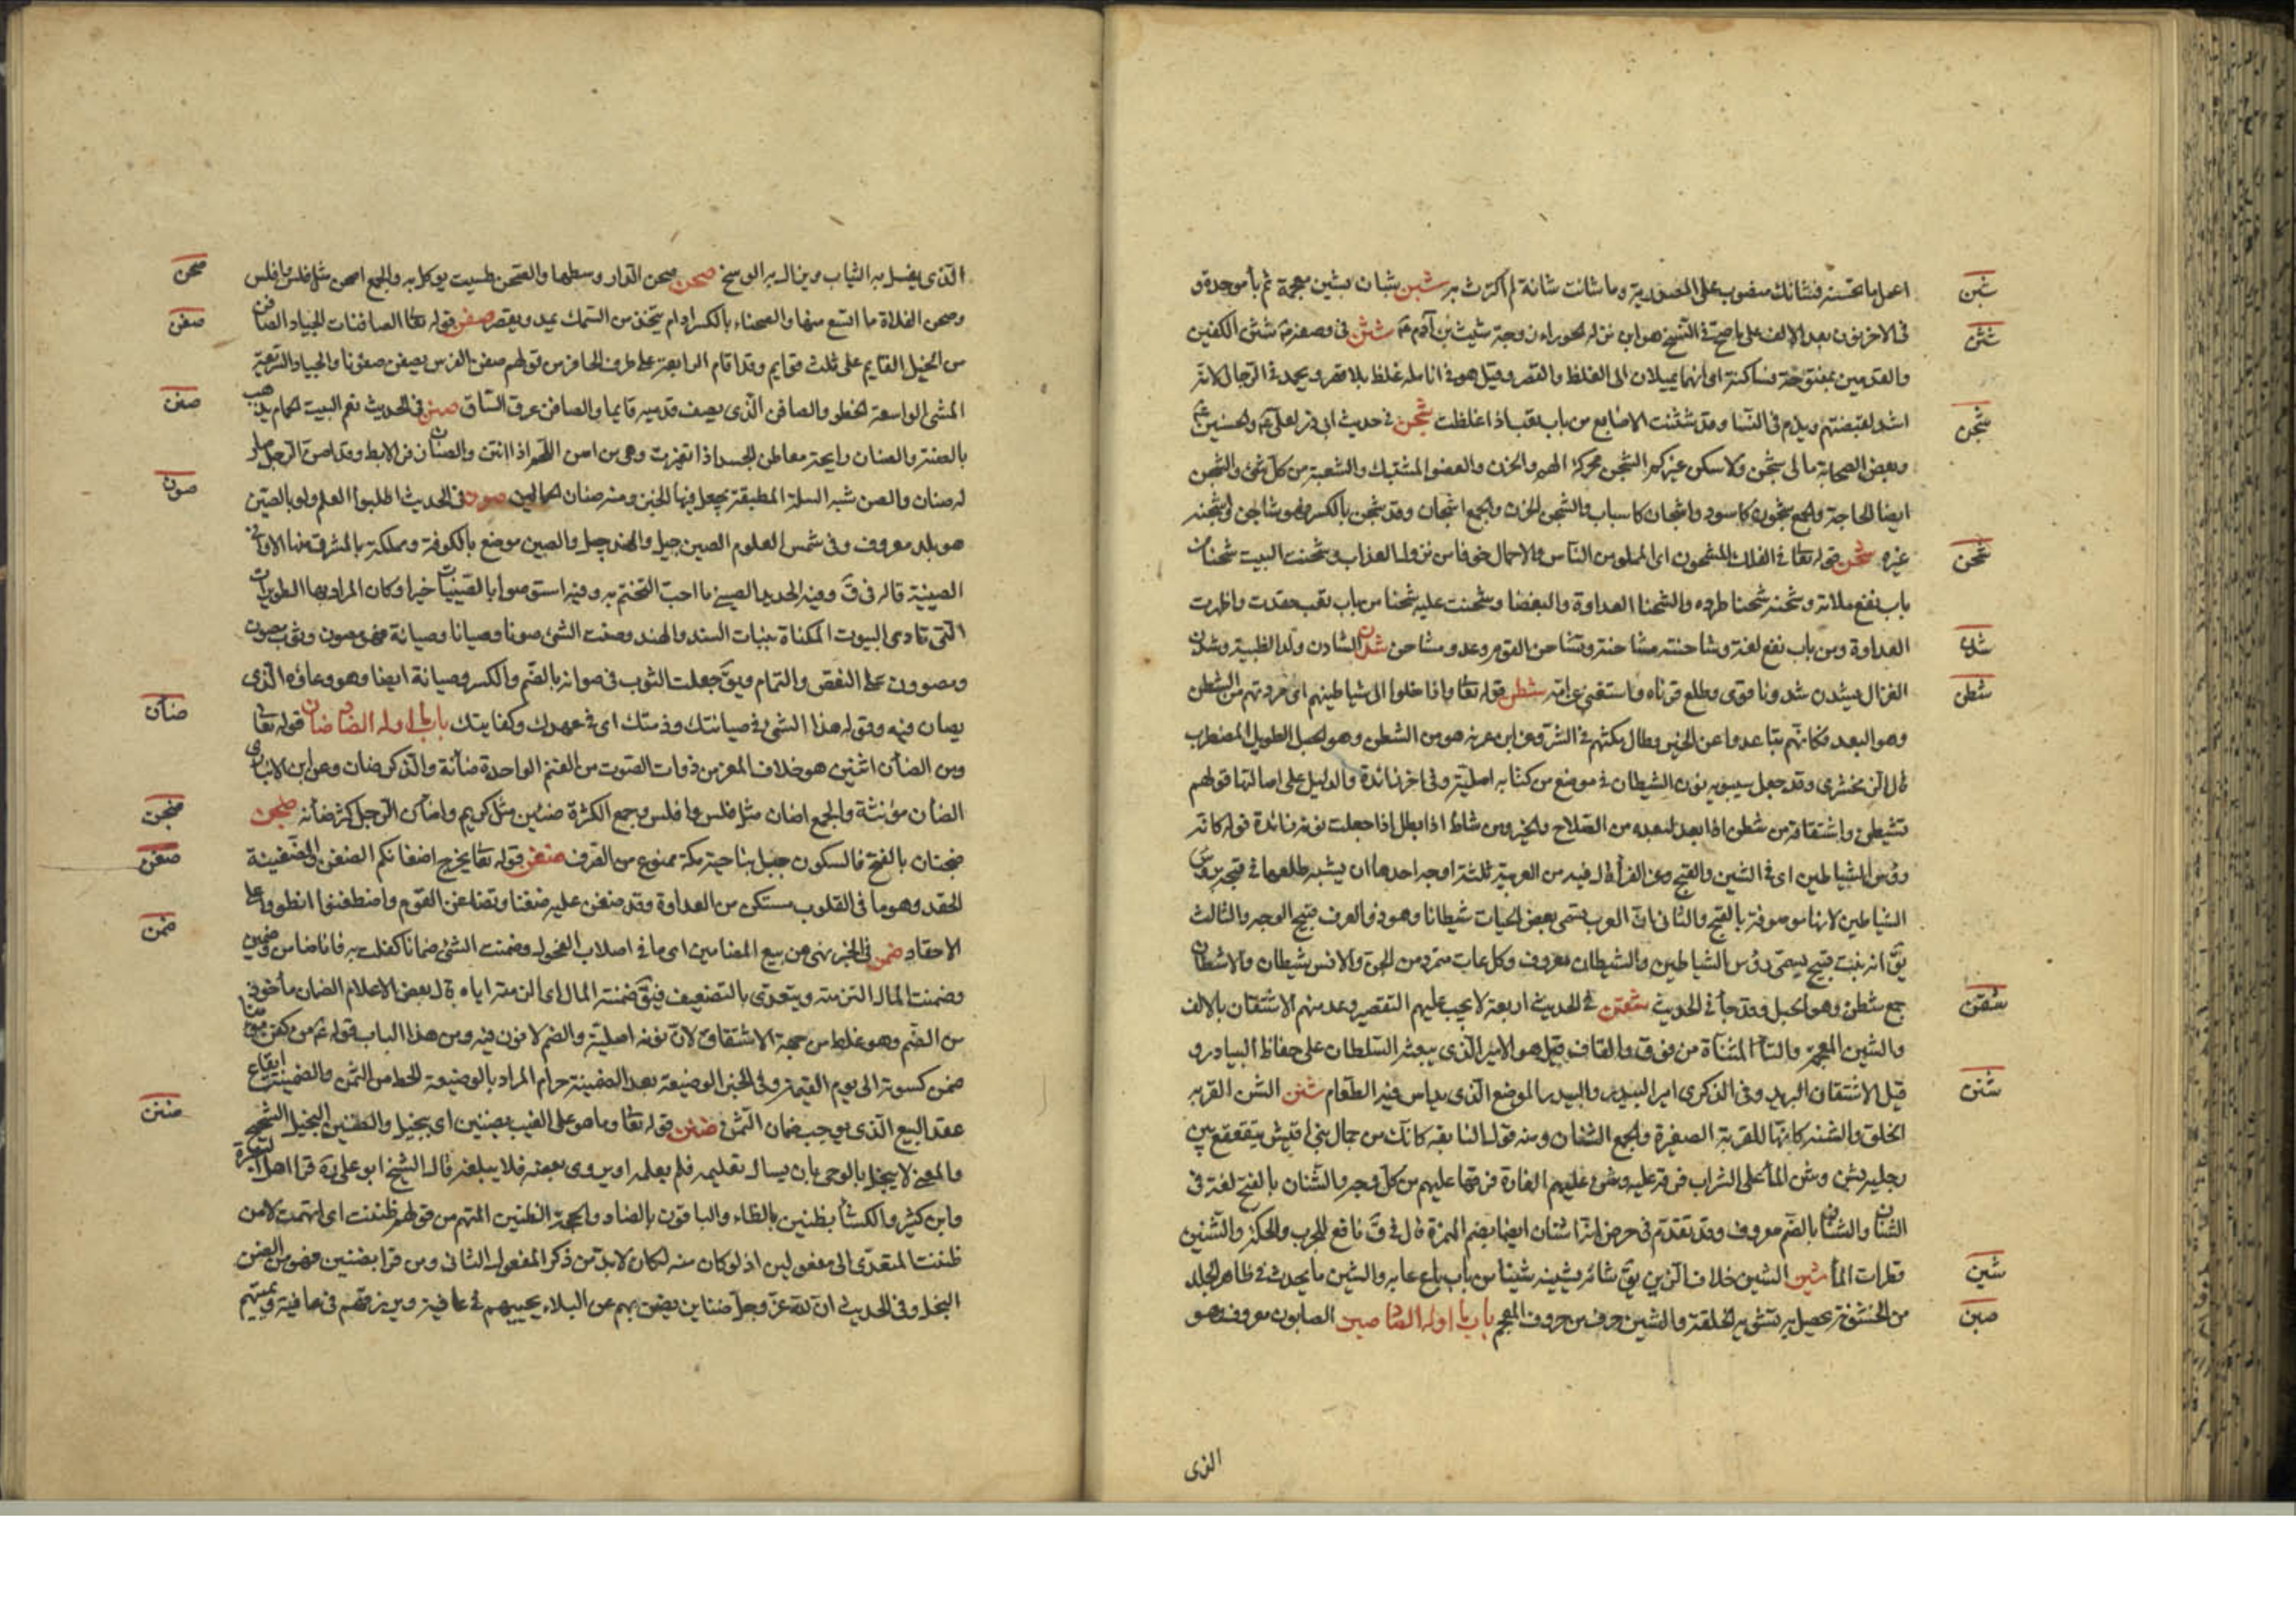 اعمل ما تحسنه فشأنك منصوب على المصدرية وما شانت شانه لم اكترث به شبن شبان بشين معجمة ثم باء موحدة و
شبن
فى الاخر نون بعد الالف على ما صح فى النسخ هو ابن نزله الحوراء زوجة شيث بن آدم ع شثن فى وصفه ع شثن الكفين
شثن
والقدمين بمفتوحة فساكنة اى انهما يميلان الى الغلظ والقصر وقيل هو فى انامله غلظ بلا قصر ويحمد فى الرجال لانه
اشد لقبضتهم ويذم فى النساء وقد شثنت الاصابع من باب تعب اذا غلظت شجن فى حديث ابى ذر لعلى ع والحسنين ع
شجن
وبعض الصحابة مالى شجن ولا سكن غيركم الشجن محركة الهم والحزن والغصن المشتبك والشعبة من كل شئ والشجن
ايضا الحاجة والجمع شجون كاسود واشجان كاسباب والشجن الحزن والجمع اشجان وقد شجن بالكسر فهو شاجن وشجنه
غيره شحن قوله تعا فى الفلك المشحون اى المملو من الناس والاحمال خوفا من نزول العذاب وشحنت البيت شحنا من
شحن
باب نفع ملاته وشحنه شحنا طرده والشحنا العداوة والبغضا وشحنت عليه شحنا من باب تعب حقدت واظهرت
العداوة ومن باب نفع لغة وشاحنته مشاحنة وتشاحن القوم وعدو مشاحن شدن الشادن ولد الظبية وشدن
شدن
الغزال يشدن شدونا قوى وطلع قرناه واستغنى عن امه شطن قوله تعا واذا خلوا الى شياطينهم اى مردتهم من الشطن
شطن
وهو البعد فكانهم تباعدوا عن الخير وطال مكثهم فى الشر وعن ابن عرفه هو من الشطن وهو الحبل الطويل المضطرب
قال الزمخشرى وقد جعل سيبويه نون الشيطان فى موضع من كتابه اصلية وفى اخر زائدة والدليل على اصالتها قولهم
تشيطن واشتقاقه من شطن اذا بعد لبعده من الصلاح والخير ومن شاط اذا بطل اذا جعلت نونه زائدة قوله كانه
رؤس الشياطين اى فى الشين والقبح وعن الفراء قال فيه من العربية ثلثة اوجه احدها ان يشبه طلعها فى قبحه برؤس
الشياطين لانها موصوفة بالقبح والثانى ان العرب يسمى بعض الحيات شيطانا وهو ذو العرف قبيح الوجه والثالث
يق انه نبت قبيح يسمى رؤس الشياطين والشيطان معروف وكل عات متمرد من الجن والانس شيطان والاشطان
جمع شطن وهو الحبل وقد جأ فى الحديث شقتن فى الحديث اربعة لا يجب عليهم التقصير وعد منهم الاشتقان بالالف
شقتن
والشين المعجمة والتاء المثناة من فوق والقاف قيل هو الامير الذى يبعثه السلطان على حفاظ البيادر و
قيل الاشتقان البريد وفى الذكرى امير البيدر والبيدر الموضع الذى يداس فيه الطعام شنن الشن القربه
شنن
الخلق والشنه كانها للقربة الصغيرة والجمع الشنان ومنه قول النابغه كانك من جمال بنى اقيش يقعقع بين
رجليه بشن وشن الماء على الشراب فرقه عليه وشن عليهم الغارة فرقها عليهم من كل وجه والشنان بالفتح لغة فى
الشنان والشنان بالضم معروف وقد تقدم فى حرض اشنان ايضا بضم الهمزة قال فى ق نافع للجرب والحكة والتشنين
قطرات الماء شين الشين خلاف الزين يق شانه يشينه شينا من باب باع عابه والشين ما يحدث فى ظاهر الجلد
شين
من الخشونة يحصل به تشويه الخلقة والشين حرف من حروف المعجم باب ما اوله الصاد صبن الصابون معروف وهو
صبن
الذى
الذى يغسل به الثياب وينال به الوسخ صحن صحن الدار وسطها والصحن طسيت يوكل به والجمع اصحن مثل فلس وافلس
صحن
وصحن الفلاة ما اتسع منها والصحناء بالكسر ادام يتخذ من السمك يمد ويقصر صفن قوله تعا الصافنات الجياد الصافن
صفن
من الخيل القايم على ثلث قوايم وقد اقام الرابعة على طرف الحافر من قولهم صفن الفرس يصفن صفونا والجياد السريعة
المشى الواسعة الخطو والصافن الذى يصف قدميه قايما والصافن عرق الساق صنن فى الحديث نعم البيت الحمام يذهب
صنن
بالصنة والصنان رايحة معاطن الجسد اذا تغيرت وهى من اصن اللحم اذا انتن والصنان ذفر الابط وقد اصن الرجل صار
له صنان والصن شبه السلة المطبقة يجعل فيها الخبز ومنه صنان الحمالين صون فى الحديث اطلبوا العلم ولو بالصين
صون
هو بلد معروف وفى شمس العلوم الصين جيل والهند جيل والصين موضع بالكوفة ومملكة بالمشرق منها الاوانى
الصينية قاله فى ق وفيه الحديد الصينى ما احب التختم به وفيه استوصوا بالصينيات خيرا وكان المراد بها الطويرات
التى تاوى البيوت المكناة ببنات السند والهند وصنت الشئ صونا وصيانا وصيانة فهو مصون وثوب مصون
ومصوون على النقص والتمام ويق جعلت الثوب فى صوانه بالضم والكسر وصيانة ايضا وهو وعاؤه الذى
يصان فيه وقوله هذا الشئ فى صيانتك وذمتك اى فى عهدك وكفايتك باب ما اوله الضاد ضان قوله تعا
ضأن
ومن الضأن اثنين هو خلاف المعز من ذوات الصوف من الغنم الواحدة ضأنة والذكر ضان وعن ابن الانبارى
الضأن مؤنثة والجمع اضان مثل فلس وافلس وجمع الكثرة ضئين مثل كريم واضأن الرجل كثر ضأنه ضجن
ضجن
ضجنان بالفتح فالسكون جبل بناحية مكة ممنوع من الصرف ضغن قوله تعا يخرج اضغانكم الضغن والضغينة
ضغن
الحقد وهو ما فى القلوب مستكن من العداوة وقد ضغن عليه ضغنا وتضاغن القوم واضطغنوا انطووا على
الاحقاد ضمن فى الخبر نهى عن بيع المضامين اى ما فى اصلاب الفحول وضمنت الشئ ضمانا كفلت به فانا ضامن وضمين
ضمن
وضمنت المال التزمته ويتعدى بالتضعيف فيق ضمنته المال اى الزمته اياه قال بعض الاعلام الضمان مأخوذ
من الضم وهو غلط من جهة الاشتقاق لان نونه اصلية والضم لا نون فيه ومن هذا الباب قوله ع من كفن مؤمنا
ضمن كسوته الى يوم القيمة وفى الخبر الوضيعة بعد الضمينة حرام المراد بالوضيعة الحط من الثمن والضمينة ايقاع
عقد البيع الذى يوجب ضمان الثمن ضنن قوله تعا وما هو على الغيب بضنين اى ببخيل والضنين البخيل الشحيح
ضنن
والمعنى لا يبخل بالوحى بان يسال تعليمه فلم يعلمه او يروى بعضه فلا يبلغه قال الشيخ ابو على ره قرا اهل البصرة
وابن كثير والكسائى بظنين بالظاء والباقون بالضاد والحجة الظنين المتهم من قولهم ظننت اى اتهمت لا من
ظننت المتعدى الى مفعولين اذ لو كان منه لكان لا بد من ذكر المفعول الثانى ومن قرا بضنين فهو من الضن
البخل وفى الحديث ان لله عز وجل ضناين يضن بهم عن البلاء يحييهم فى عافية ويرزقهم فى عافية ويميتهم